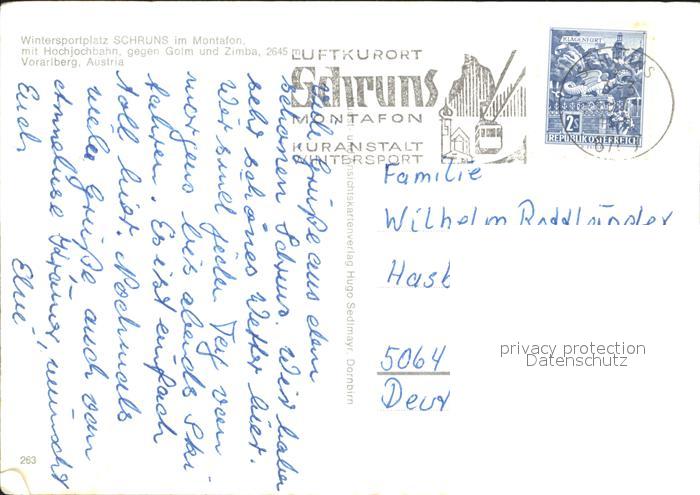 Wintersportplatz SCHRUNS im Montafon,
mit Hochjochbahn, gegen Golm und Zimba, 2645
Vorarlberg, Austria
LUFTKURORT
Schruns
MONTAFON
KURANSTALT
WINTERSPORT
KLAGENFURT
2S
REPUBLIK ÖSTERREICH
Viele Grüße aus dem
schönen Schruns. Wir haben
sehr schönes Wetter hier.
Wir sind jeden Tag von
morgens bis abends Ski-
fahren. Es ist einfach
toll hier. Nochmals
viele Grüße auch von
Anneliese Krämer, wünscht
Euch
Elke
Ansichtskartenverlag Hugo Sedlmay, Dornbirn
Familie
Wilhelm
Hast
5064
privacy protection
Datenschutz
263